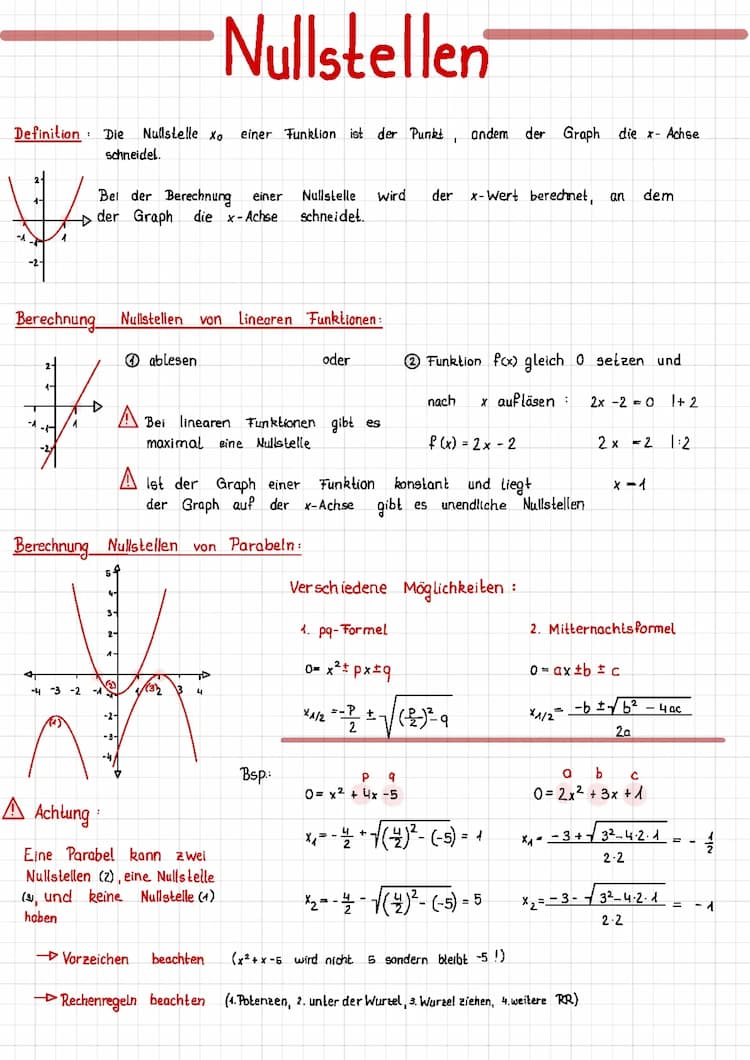 Nullstellen
Definition : Die Nullstelle x₀ einer Funktion ist der Punkt, andem der Graph die x-Achse
schneidet.
2
1
-1 -1 1
-2
Bei der Berechnung einer Nullstelle wird der x-Wert berechnet, an dem
der Graph die x-Achse schneidet.
Berechnung Nullstellen von linearen Funktionen:
2
1
-1 -1 1
-2
① ablesen oder ② Funktion f(x) gleich 0 setzen und
nach x auflösen : 2x -2 = 0 |+2
⚠ Bei linearen Funktionen gibt es
maximal eine Nullstelle
f(x) = 2x - 2 2x = 2 |:2
⚠ Ist der Graph einer Funktion konstant und liegt x = 1
der Graph auf der x-Achse gibt es unendliche Nullstellen
Berechnung Nullstellen von Parabeln:
5
4
3
2
1
-4 -3 -2 -1 (2) 1 (3) 2 3 4
-1
(1) -2
-3
-4
Verschiedene Möglichkeiten :
1. pq-Formel 2. Mitternachtsformel
0= x² ± px ± q 0 = ax ± b ± c
x₁/₂ = -p/2 ± √((p/2)² - q) x₁/₂ = (-b ± √(b² - 4ac)) / 2a
Bsp: p q a b c
0= x² + 4x -5 0= 2x² + 3x + 1
⚠ Achtung :
x₁ = -4/2 + √((4/2)² - (-5)) = 1 x₁ = (-3 + √(3² - 4·2·1)) / 2·2 = - 1/2
Eine Parabel kann zwei
Nullstellen (2), eine Nullstelle
(3), und keine Nullstelle (1)
haben
x₂ = -4/2 - √((4/2)² - (-5)) = 5 x₂ = (-3 - √(3² - 4·2·1)) / 2·2 = -1
→ Vorzeichen beachten (x² + x -5 wird nicht 5 sondern bleibt -5 !)
→ Rechenregeln beachten (1. Potenzen, 2. unter der Wurzel, 3. Wurzel ziehen, 4. weitere RR)